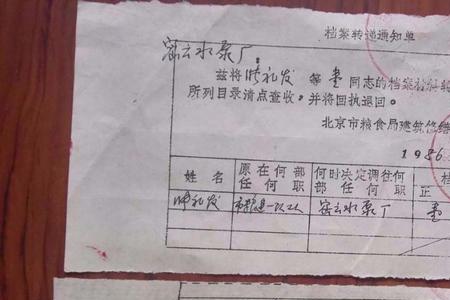 档案转递通知单
密云水泵厂：
兹将 礼发 等 壹 同志的档案材料转
所列目录清点查收，并将回执退回。
北京市粮食局建筑修缮
1986
姓名 原在何部任何职 何时决定调往何部任何职 档 正
礼发 市粮建一队工人 密云水泵厂 壹